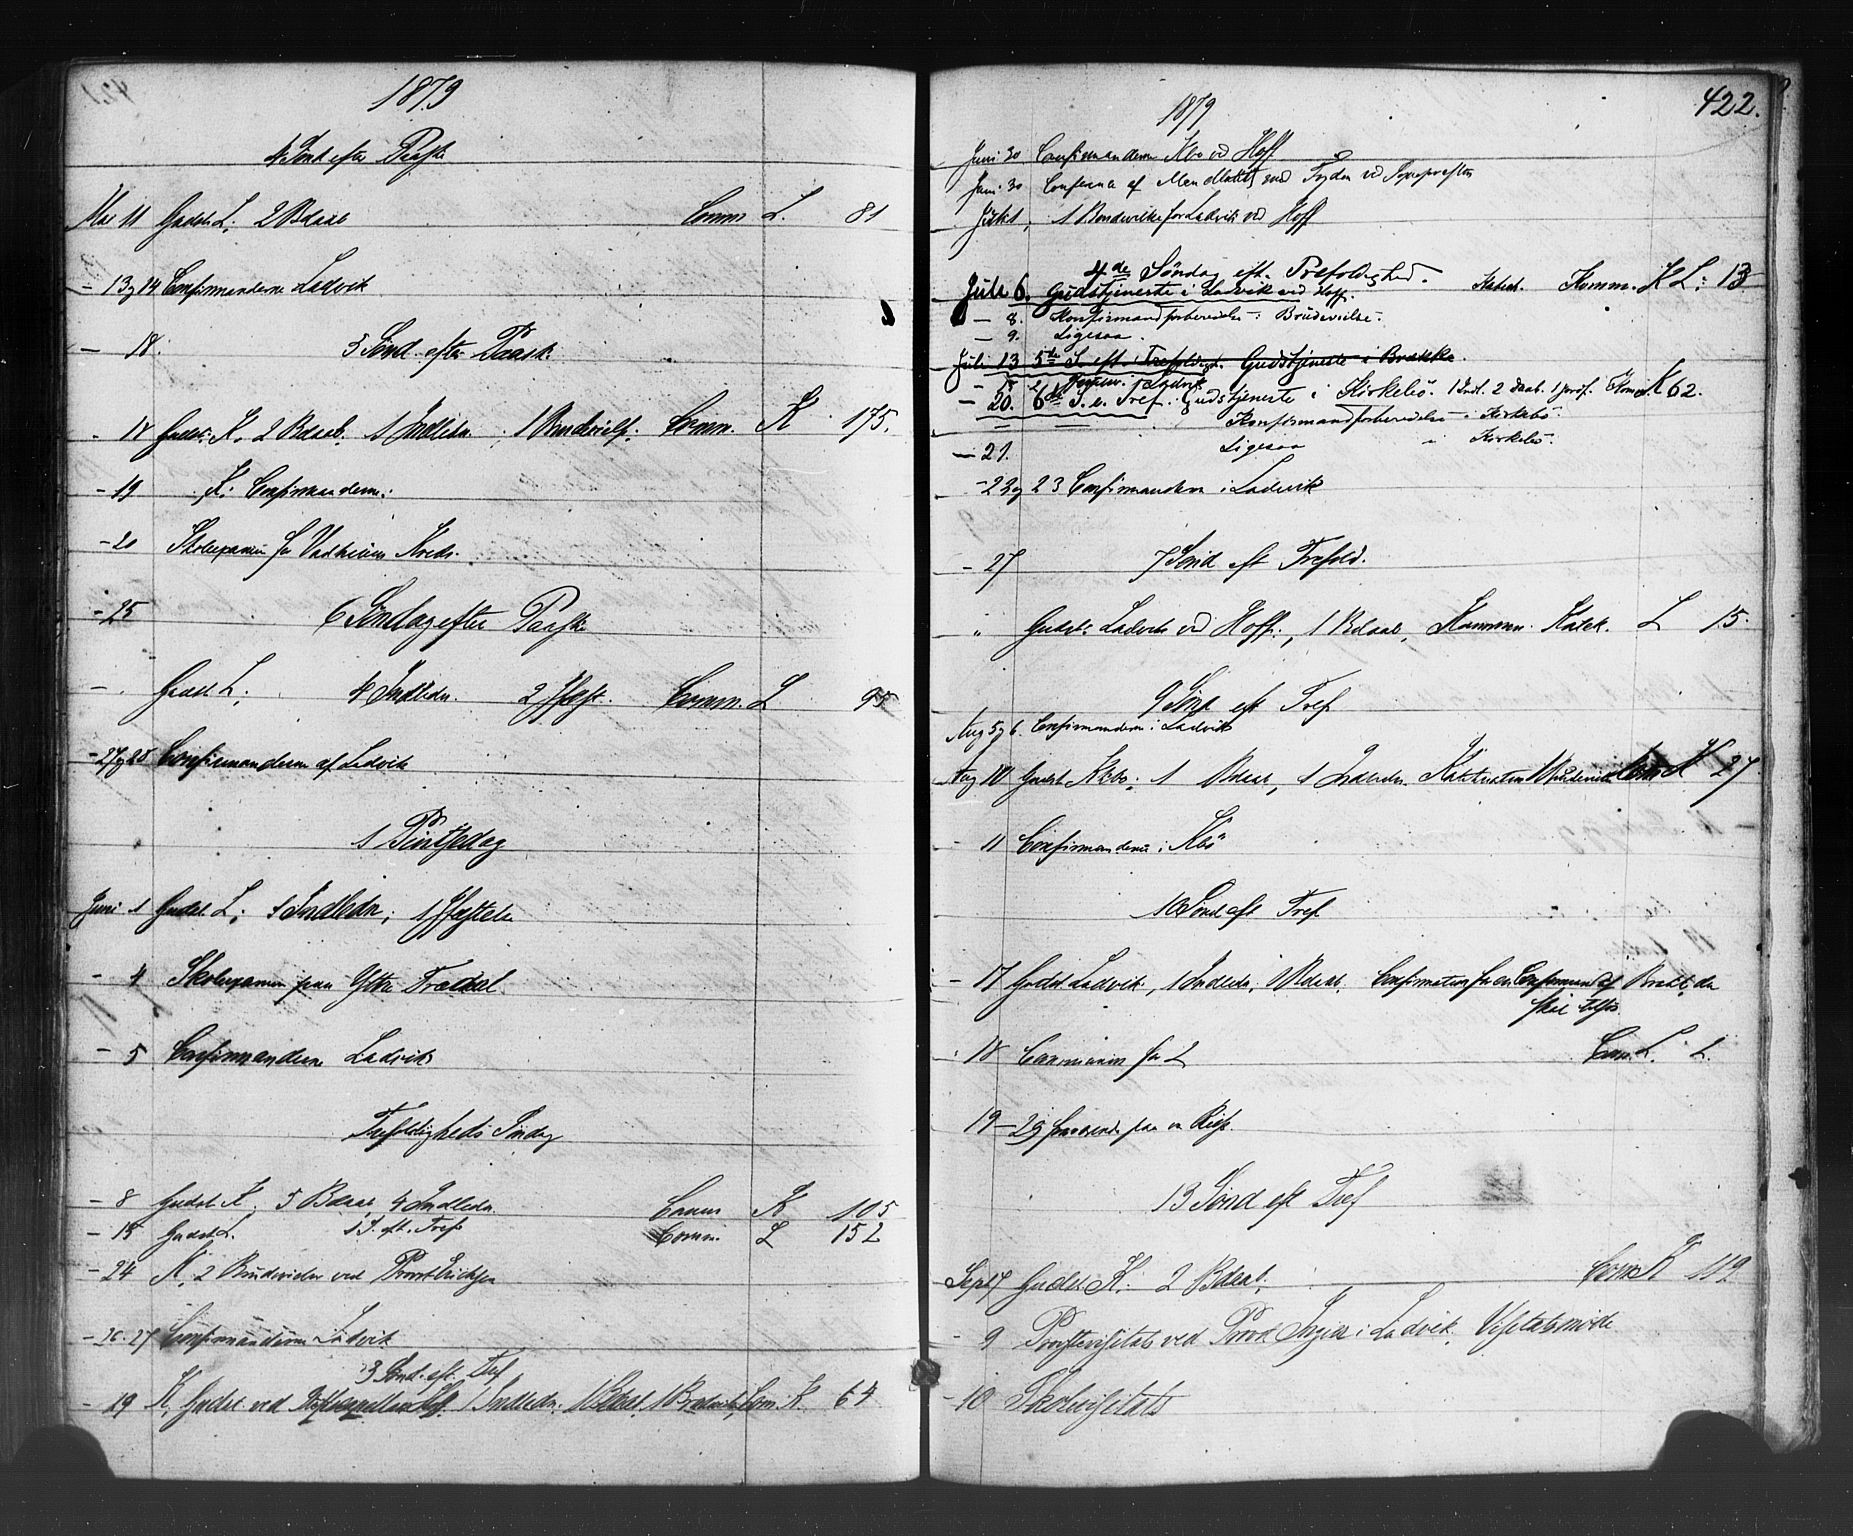 1879
4 Sønd efter Paaske
Mai 11 Gudst. L. 2 Bdaab Comm L. 81
- 13 og 14 Confirmanderne Ladvik
- 18. 5 Sønd. efter Paask.
- 18 Gudst. K. 2 Bdaab. 1 Indledn. 1 Brudevielse. Comm. K 175.
- 19 K. Confirmanderne.
- 20 Skoleexamen for Vadheims Kreds.
- 25 6 Søndag efter Paaske
- Gudst L. 4 Indledn. 2 Jfæst. Comm. L 95
- 27 og 28 Confirmanderne af Ladvik
1 Pintsedag
Juni 1 Gudst L. 1 Indledn; 1 Jfæstelse
- 4 Skoleexamen paa Ytre
- 5 Confirmanderne Ladvik
Trefoldigheds Søndag
- 8 Gudst. K. 5 Bdaab, 4 Indledn. Comm K 105
- 15 Gudst L. 1 S. eft. Tref. Comm. L 152
- 24 K. 2 Brudevielser ved Provst Erichsen
- 26. 27 Confirmanderne Ladvik
3 Sønd. eft. Tref
- 29 K. Gudst ved Hoff. 1 Indledn. 1 Bdaab. 1 Brudevielse, Com. K. 64
422.
1879
Juni 30 Confirmanderne Kbø ved Hoff
Juni 30 af ved Sognepresten
Juli 1, 1 Brudevielse for Ladvik ved Hoff
4de Søndag eft. Trefoldighed.
Juli 6. Gudstjeneste i Ladvik ved Hoff. Katek. Komm. K L: 13
- 8. Konfirmandforberedelse. Brudevielse.
- 9. Ligesaa.
Juli 13 5te S. eft. Trefoldigh. Gudstjeneste i Brække.
- 20. 6te S. e. Tref. Gudstjeneste i Kirkebö. 1 Indl. 2 Daab. 1 Komm. K 62.
- Konfirmandforberedelse i Kirkebö.
- 21. Ligesaa i Kirkebö.
- 22 og 23 Confirmanderne i Ladvik
- 27 7 Sønd eft Trefold.
" Gudst. Ladvik ved Hoff., 1 Bdaab, Kommun. Katek. L 15.
9 Sønd eft Tref
Aug 5 og 6. Confirmanderne i Ladvik
Aug 10 Gudst Kbø. 1 Bdaab, 1 Indledn. Katekisation 1 Brudevielse Com K 27
- 11 Confirmanderne i Kbö
10 Sønd eft Tref
- 17 Gudst Ladvik, 1 Indledn, 1 Bdaab. Confirmation for en Confirmand af Brække, der
skal tilsøs
- 18 Communion for L Com. L. L.
19 - 29 fraværende paa en Reise.
13 Sønd eft Tref
Sept 7 Gudst. K. 2 Bdaab. Com K 119
- 9 Provstevisitats ved Provst i Ladvik. Visitatsmöde
- 10 Skolevisitats